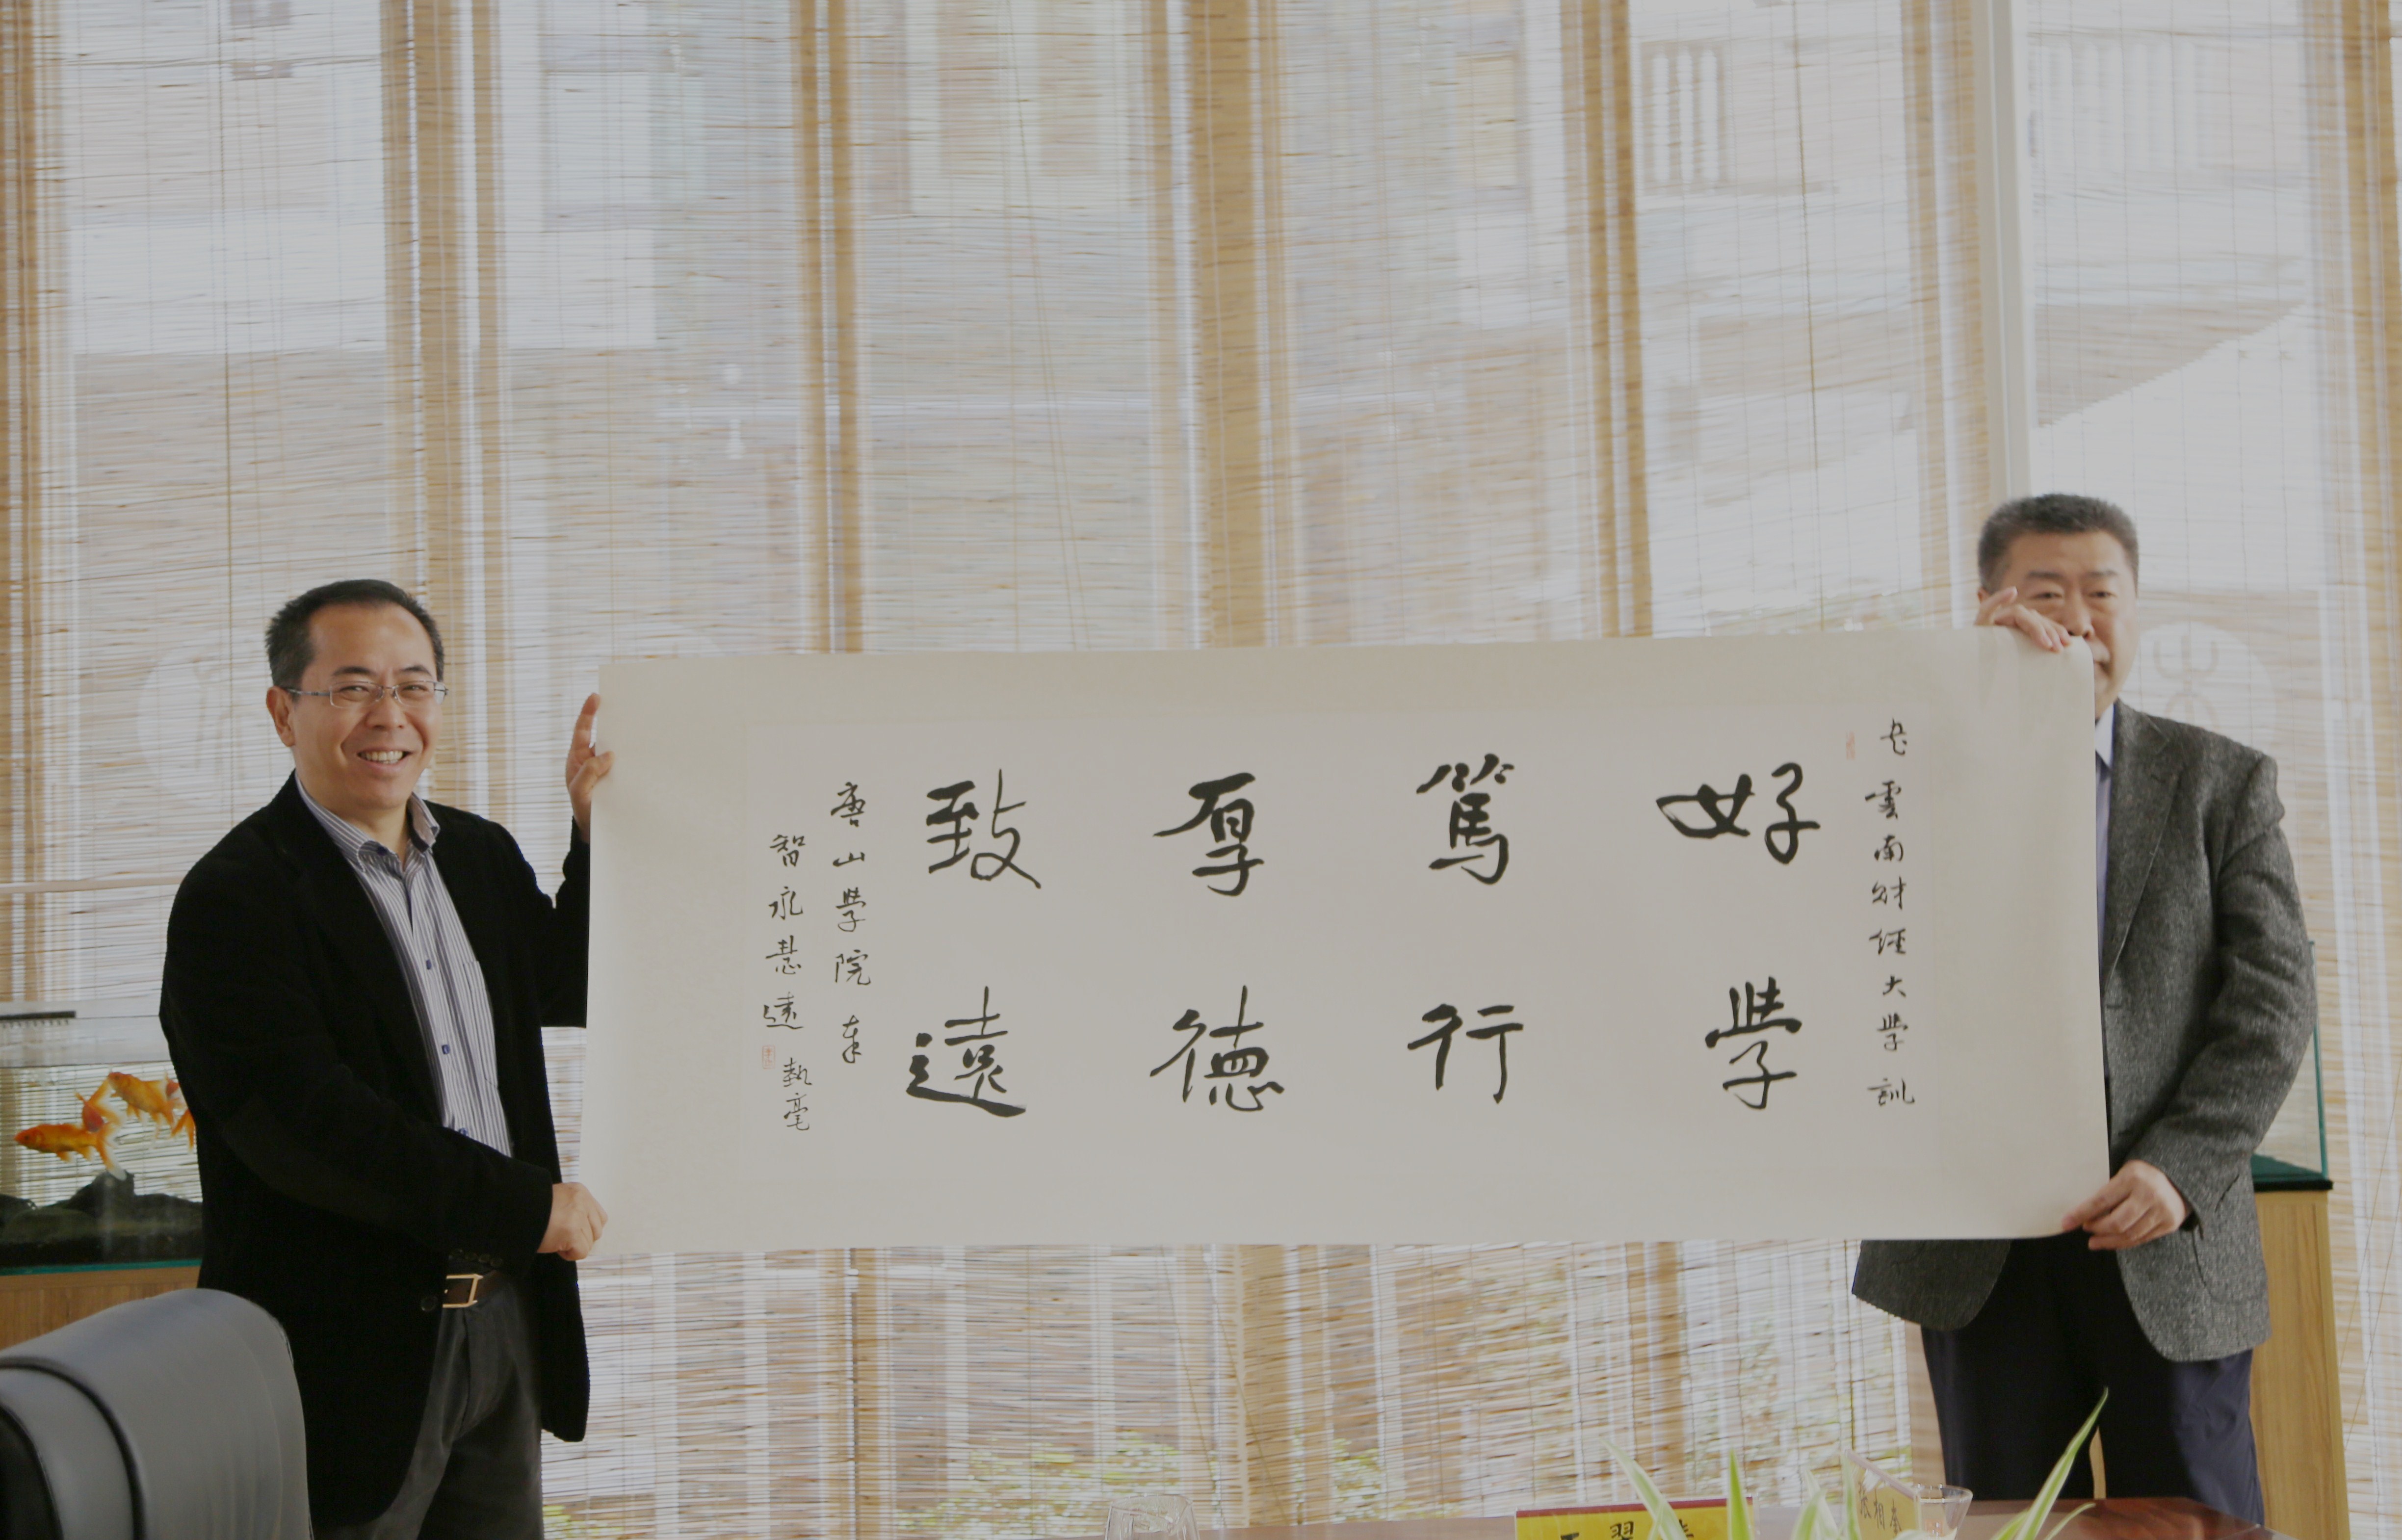 雲南財經大學訓
好學
篤行
厚德
致遠
唐山學院奉
智永慧遠 執毫